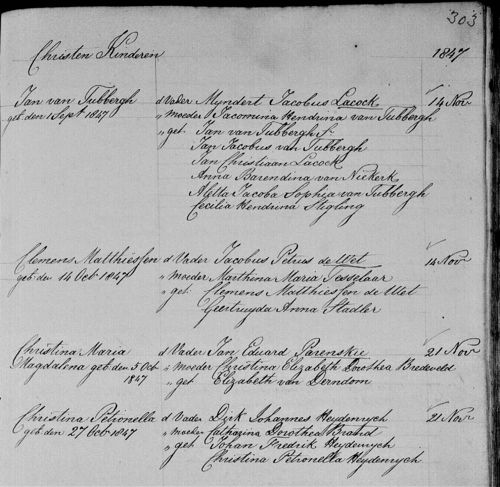 303
Christen Kinderen 1847
Jan van Tubbergh d Vader Myndert Jacobus Lacock 14 Nov
geb den 1 Sept 1847 " moeder Jacomina Hendrina van Tubbergh
" get Jan van Tubbergh Sr
Jan Jacobus van Tubbergh
Jan Christiaan Lacock
Anna Barendina van Niekerk
Aletta Jacoba Sophia van Tubbergh
Cecilia Hendrina Stigling
Clemens Matthiessen d Vader Jacobus Petrus de Wet 14 Nov
geb den 14 Oct 1847 " moeder Marthina Maria Tesselaar
" get Clemens Matthiessen de Wet
Geertruyda Anna Stadler
Christina Maria d Vader Jan Eduard Parenskie 21 Nov
Magdalena geb den 5 Oct " moeder Christina Elizabeth Dorothea Bredeveld
1847 " get Elizabeth van Derndom
Christina Petronella d Vader Dirk Johannes Heydenrych 21 Nov
geb den 27 Oct 1847 " moeder Catharina Dorothea Brand
" get Johan Fredrik Heydenrych
Christina Petronella Heydenrych